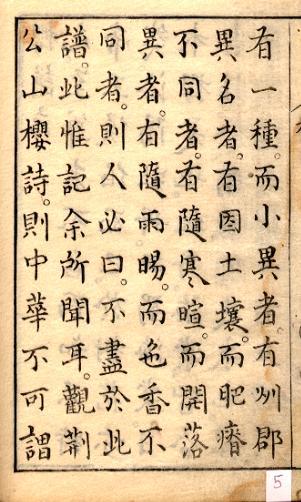 有一種。而小異者。有州郡
異名者。有因土壤。而肥瘠
不同者。有隨寒暄。而開落
異者。有隨雨暘。而色香不
同者。則人必曰。不盡於此
譜。此惟記余所聞耳。觀荊
公山櫻詩。則中華不可謂
5